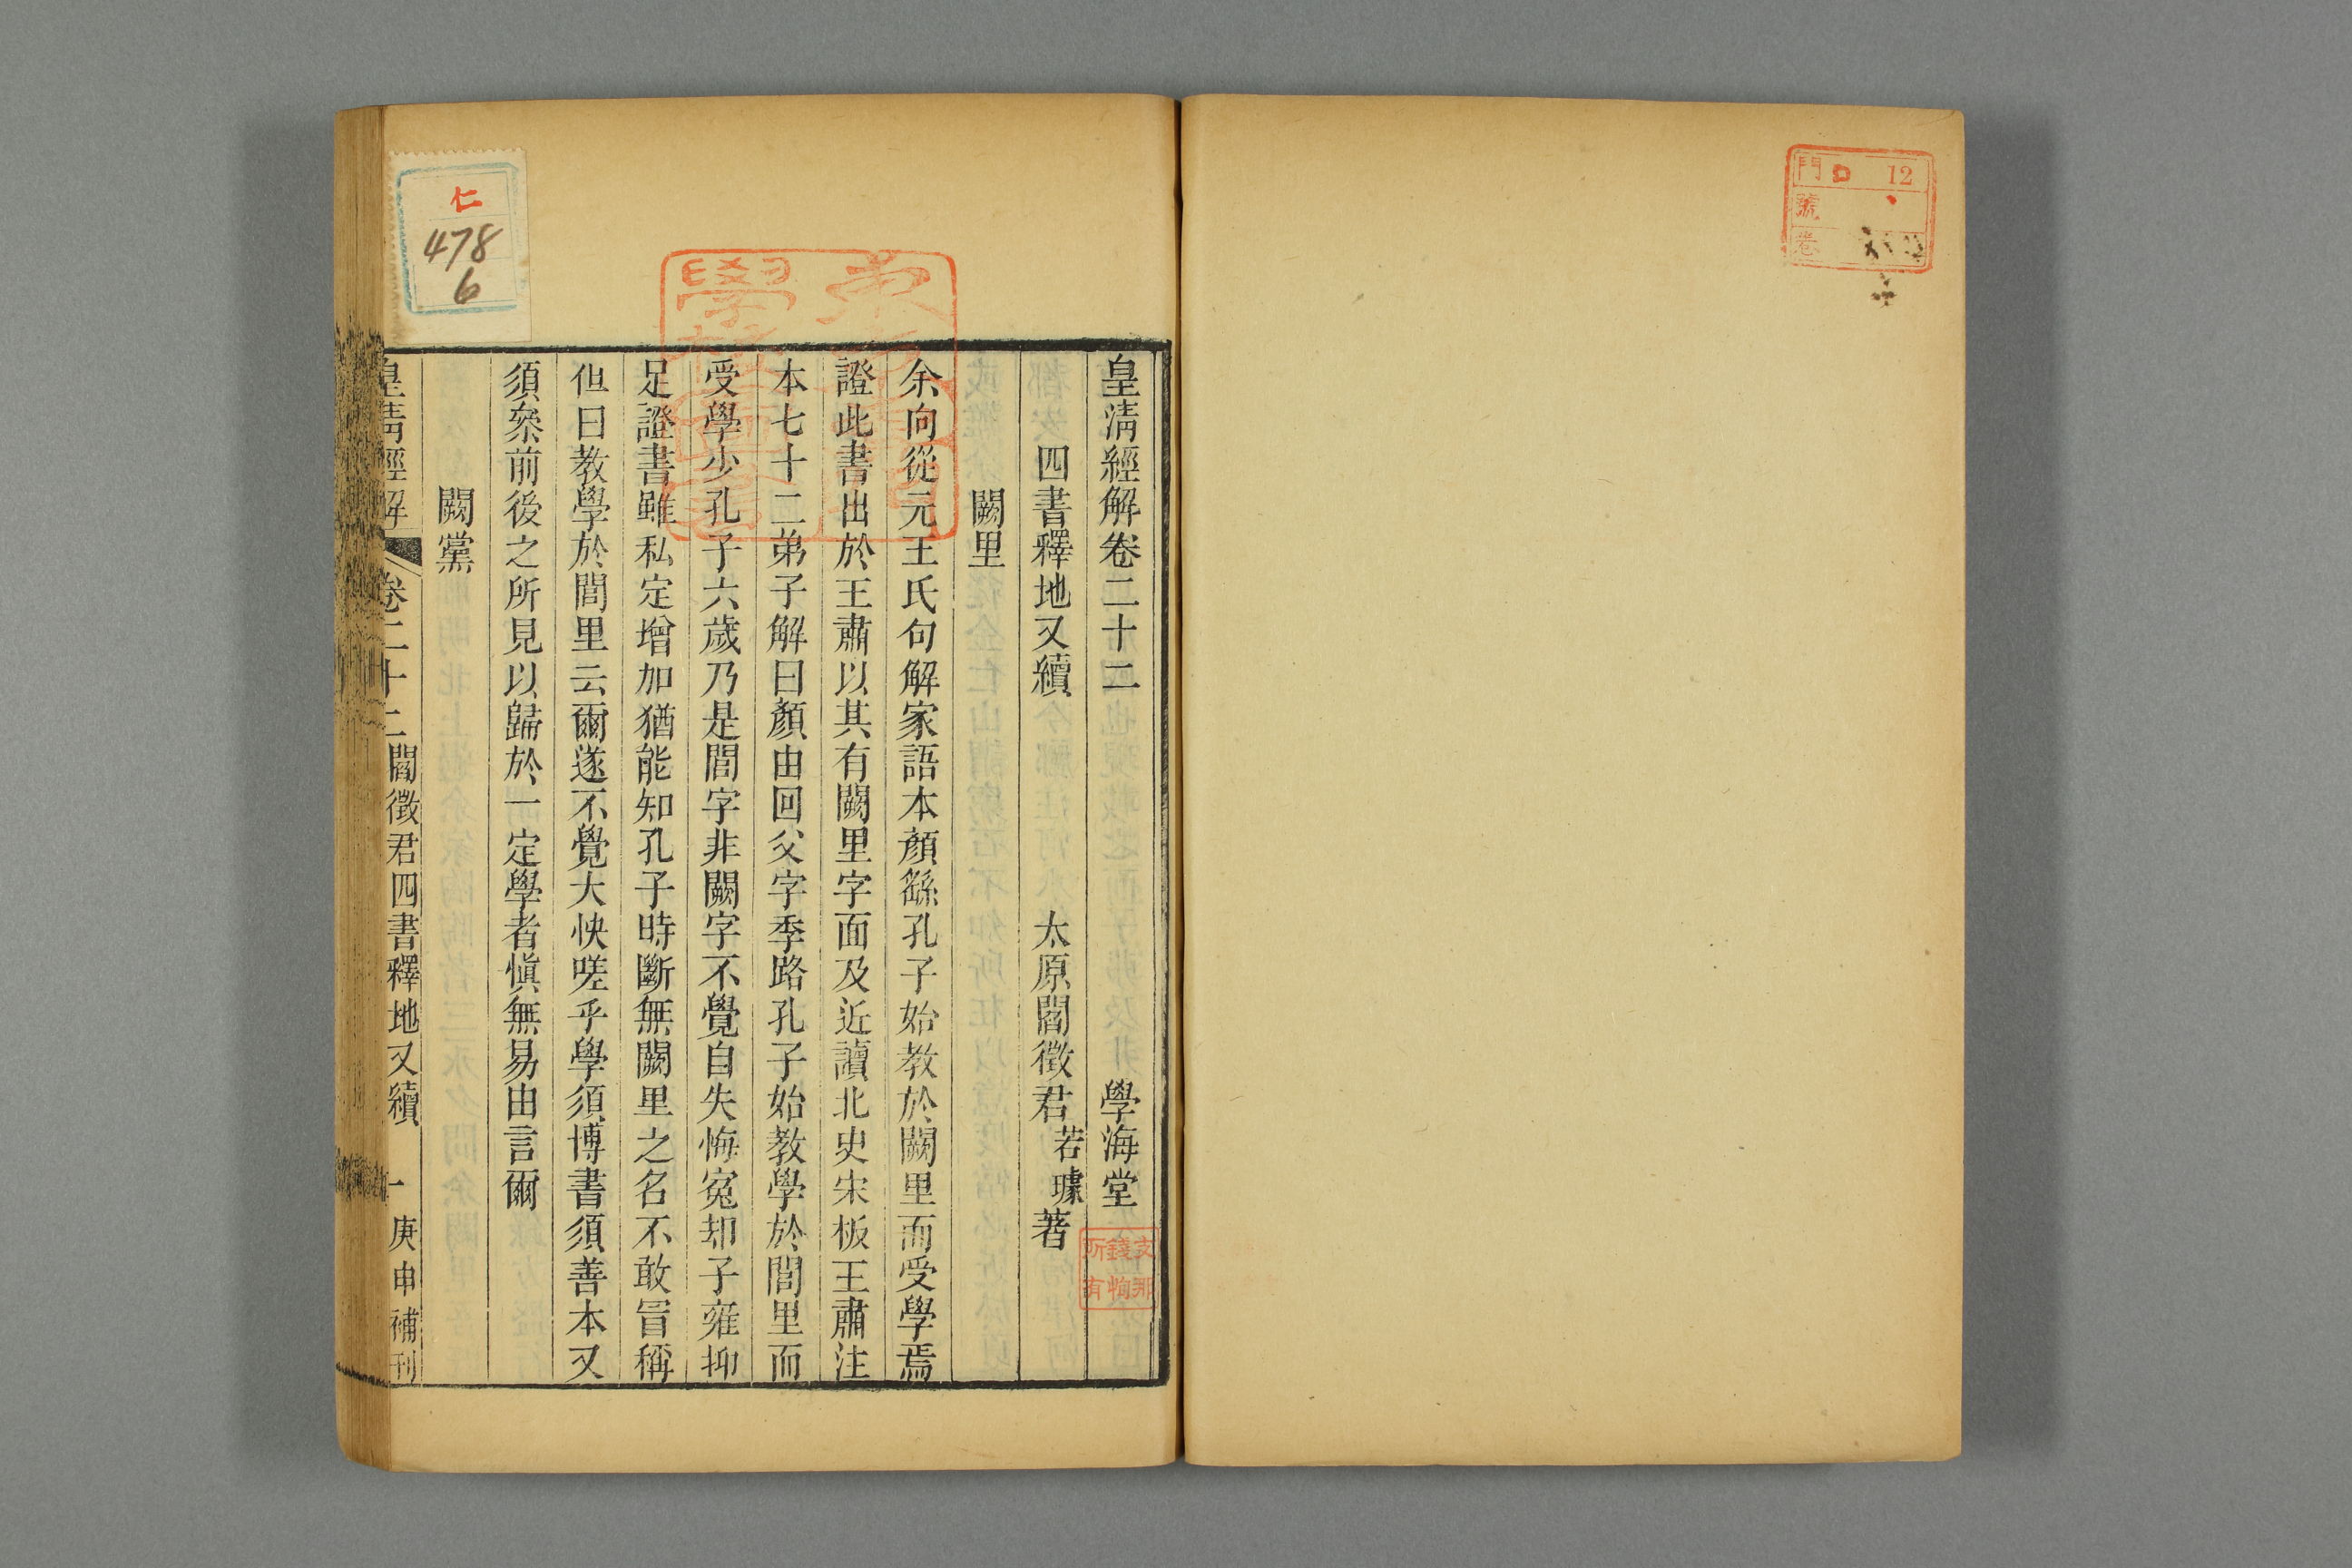 門 口 12
號
卷
皇淸經解卷二十二 學海堂
四書釋地又續 太原閻徵君若璩著
闕里
余向從元王氏句解家語本顏繇孔子始教於闕里而受學焉
證此書出於王肅以其有闕里字面及近讀北史宋板王肅注
本七十二弟子解曰顏由回父字季路孔子始教學於閭里而
受學少孔子六歲乃是閭字非闕字不覺自失悔寃却子雍抑
足證書雖私定增加猶能知孔子時斷無闕里之名不敢冒稱
但曰教學於閭里云爾遂不覺大快嗟乎學須博書須善本又
須衆前後之所見以歸於一定學者愼無易由言爾
闕黨
皇淸經解 卷二十二 閻徵君四書釋地又續 一 庚申補刊
支那
錢恂
所有
仁
478
6